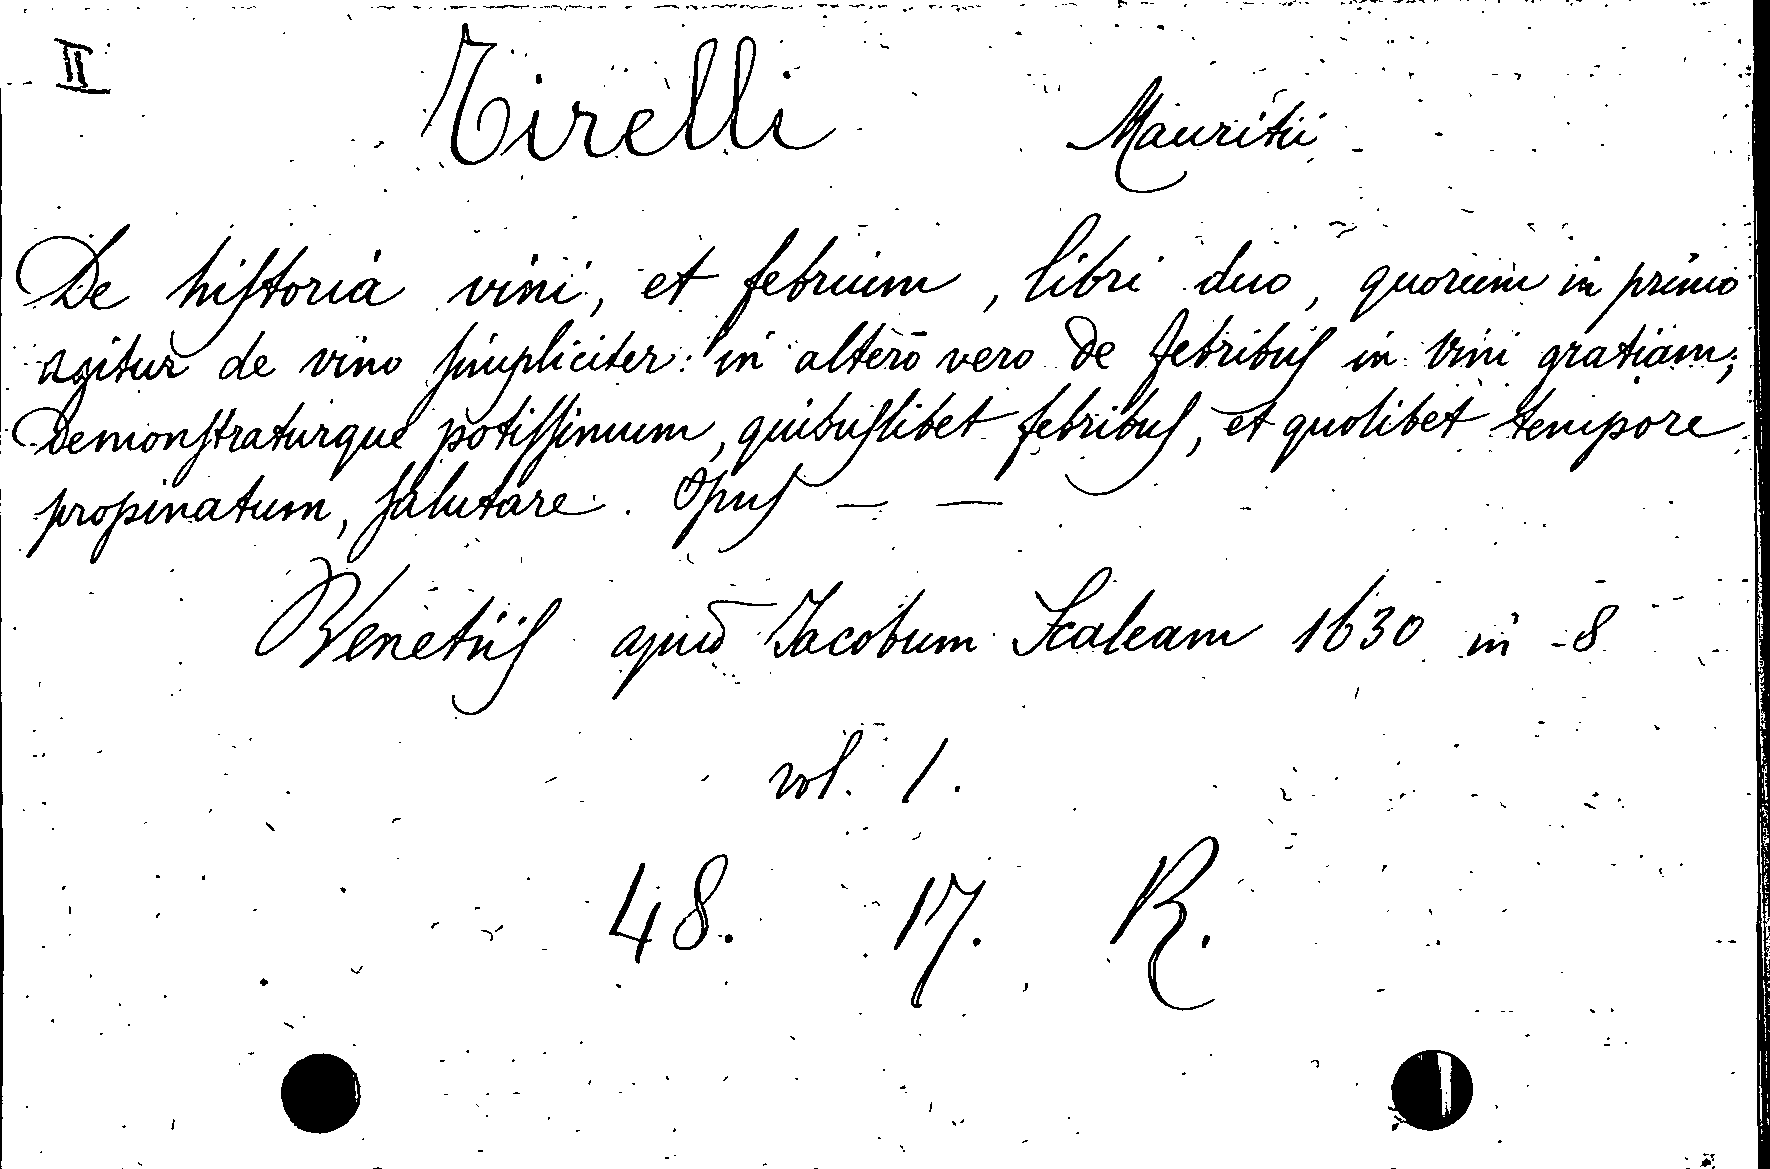 II
Tirelli Mauritii
De hiſtoria vini, et febrium, libri duo, quorum in primo
agitur de vino ſimpliciter: in altero vero de febribuſ in vini gratiam;
Demonſtraturque potiſſimum, quibuſlibet febribuſ, et quolibet tempore
propinatum, ſalutare. Opuſ — —
Venetiiſ apud Jacobum Scaleam 1630 in -8
vol. 1.
48. 17. R.